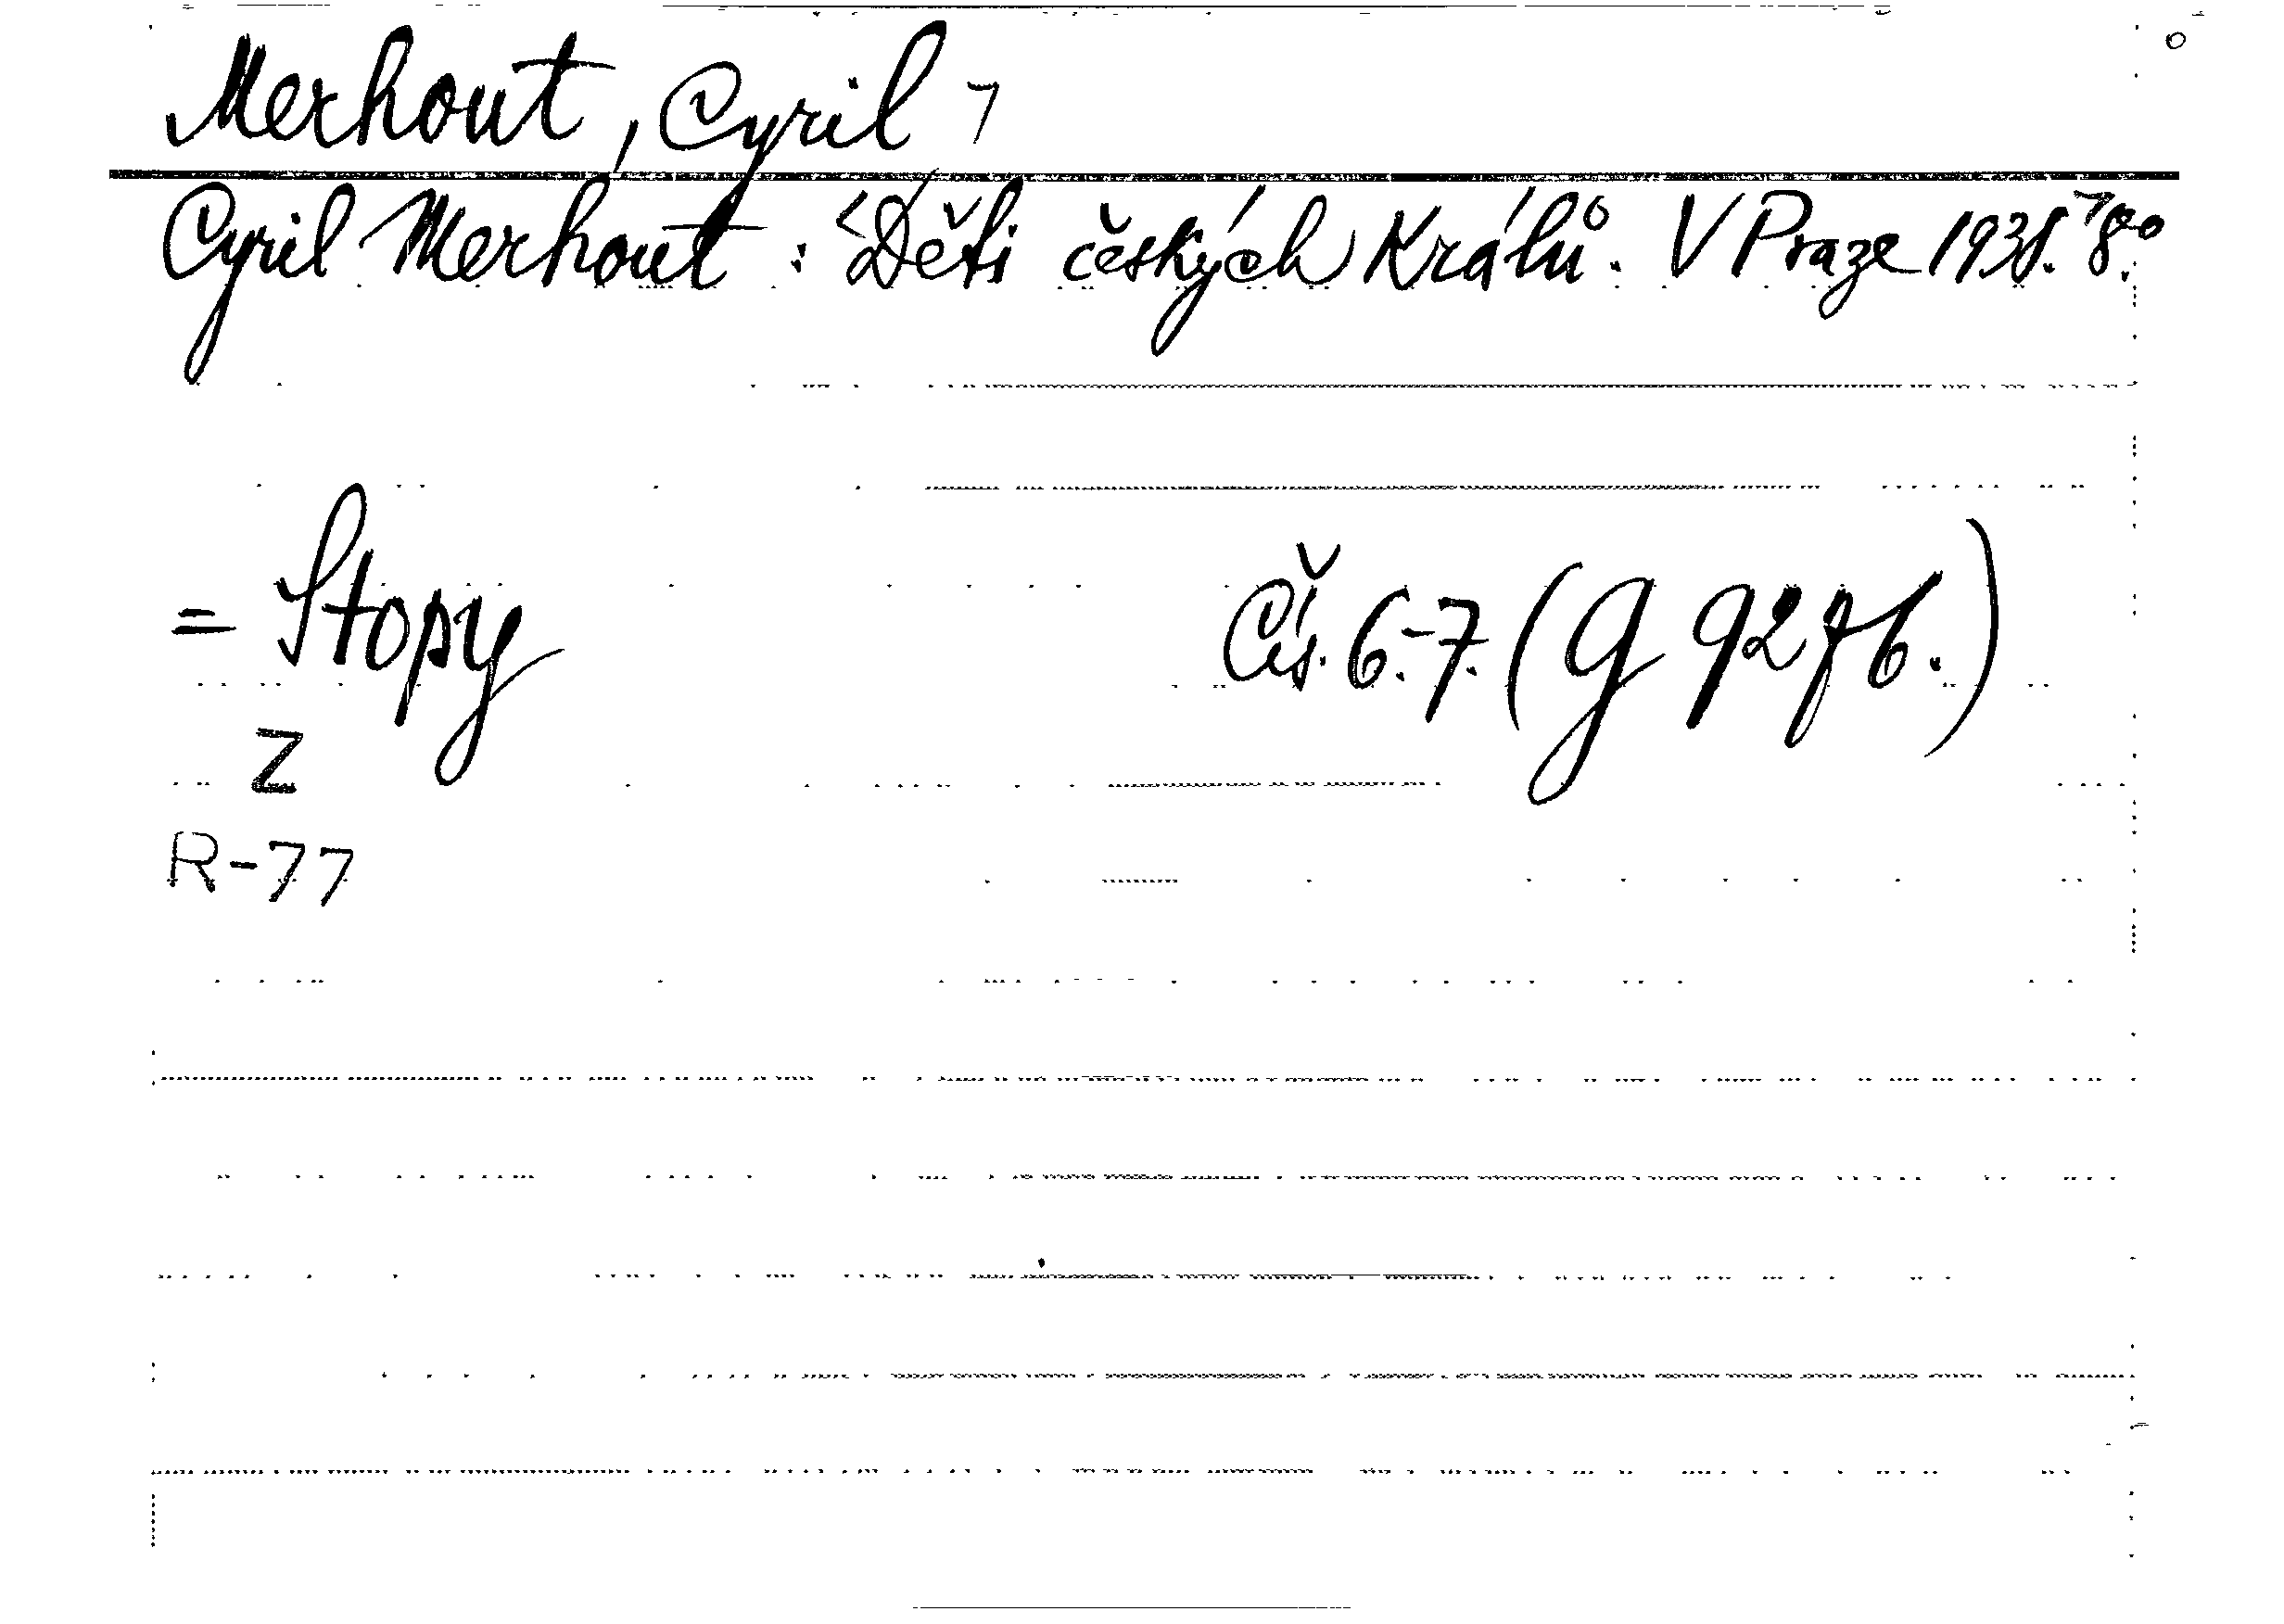 Merhout, Cyril
Cyril Merhout: Děti českých Králů. V Praze 1938. 8°.
= Stopy Čís. 6.-7. (G 9276.)
Z
R-77